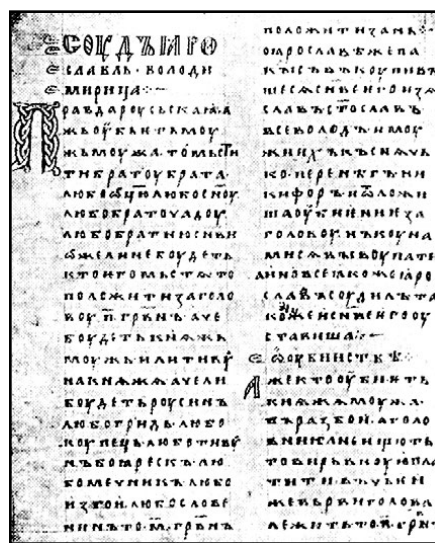 СОУДЪ ꙖРО
СЛАВЛЬ · ВОЛОДИ
МИРИЦА ·:·
Правда роусьскаꙗ а
жь оубиѥть моу
жь моужа · то мьсти
ти братоу брата
любо ѿцю любо сн҃оу
любо братоучадоу
любо братню сн҃ви
ѡже ли не боудеть
кто ѥго мьстѧ то
положити за голо
воу · п҃ · грв҃нъ · аче
боудеть кнѧжь
моужь или тивоу
на кнѧжа аче ли
боудеть роусинъ
любо гридь · любо
коупець любо тивоу
нъ боꙗрескъ · лю
бо мечникъ любо
изгои · любо слове
нинъ то · м҃ · грв҃нъ
положити за нь ·:·
по ꙗрославѣ же па
кы съвъкоупивъ
шесѧ сн҃ве ѥго изѧ
славъ ст҃ославъ
всеволодъ и моу
жи ихъ къснѧчь
ко · перенѣгъ ни
кифоръ и ѿложи
ша оубиѥниѥ за
головоу · нъ коуна
ми сѧ выкоупати
а ино все ꙗкоже ꙗро
славъ соудилъ та
коже и сн҃ве ѥго оу
ставиша ·:·
ѡ оубииствѣ ·:·
Аже кто оубиѥть
кнѧжа моужа
въ разбои · а голо
вника не ищють
то вирьвноую пла
тити · въ чьѥи
же вьрви голова
лежить то · п҃ · грв҃н